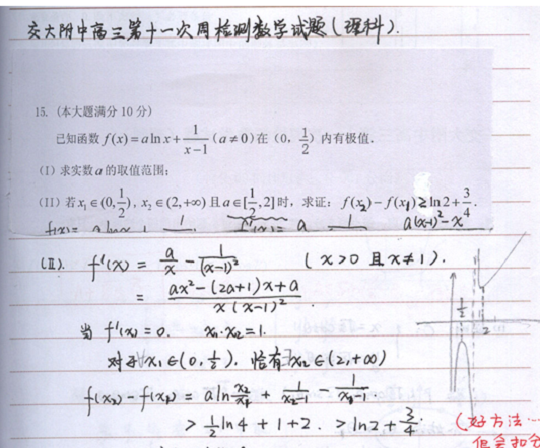 交大附中高三第十一次周检测数学试题(理科).
15. (本大题满分 10 分)
已知函数 f(x)=a ln x+1/(x-1) (a≠0)在(0, 1/2)内有极值.
(I) 求实数a的取值范围;
(II) 若x₁∈(0,1/2), x₂∈(2,+∞)且a∈[1/2,2]时, 求证: f(x₂)-f(x₁)≥ln2+3/4.
(II). f'(x) = a/x - 1/(x-1)² (x>0 且 x≠1).
= (ax²-(2a+1)x+a)/(x(x-1)²)
当 f'(x)=0. x₁·x₂=1.
对于∀x₁∈(0,1/2). 恰有∃x₂∈(2,+∞)
f(x₂)-f(x₁) = a ln x₂/x₁ + 1/(x₂-1) - 1/(x₁-1)
> 1/2 ln4 + 1 + 2. > ln2+3/4.
(好方法…